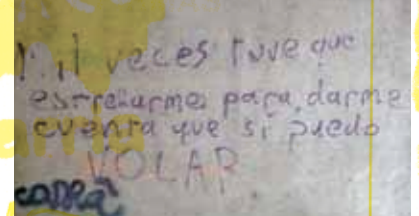 Mil veces tuve que
estrellarme, para darme
cuenta que si puedo
VOLAR